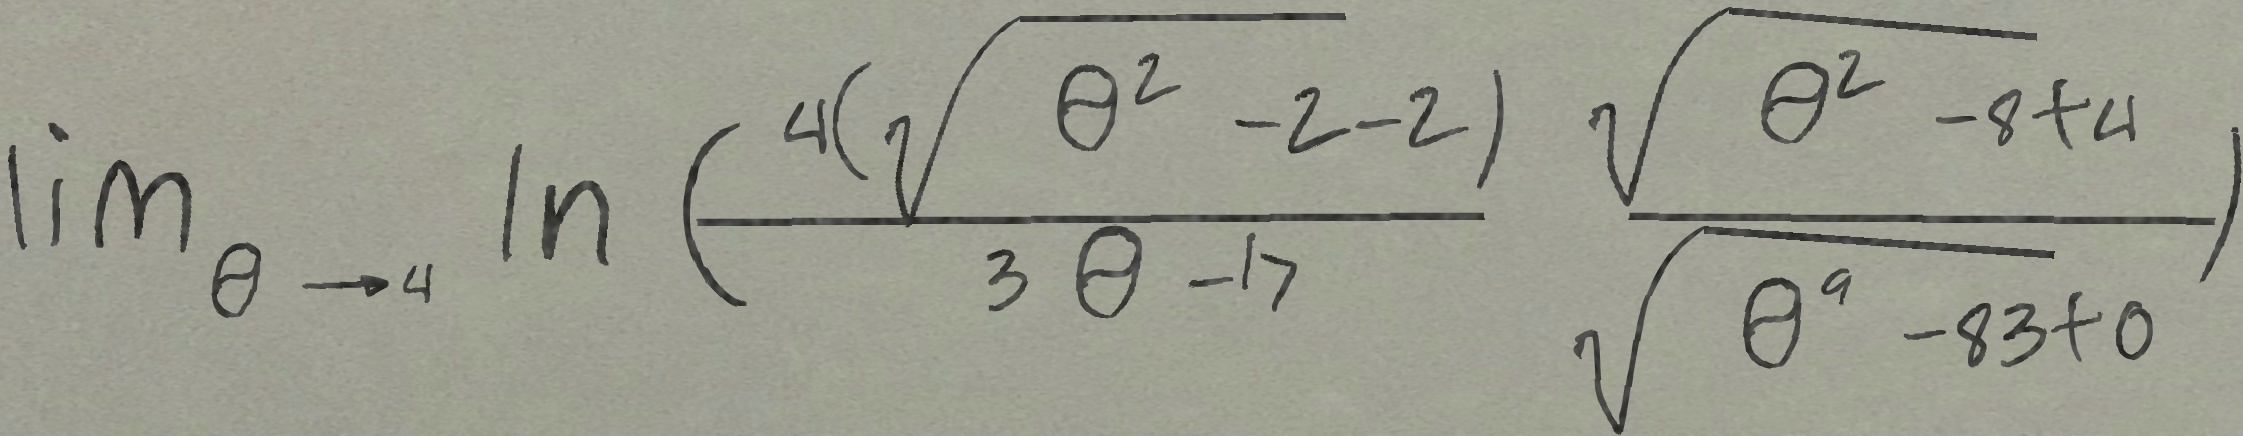 \lim_{\theta \to 4} \ln \left( \frac{4(\sqrt{\theta^2} - 2 - 2)}{3\theta - 17} \frac{\sqrt{\theta^2} - 8 + 4}{\sqrt{\theta^9} - 83 + 0} \right)